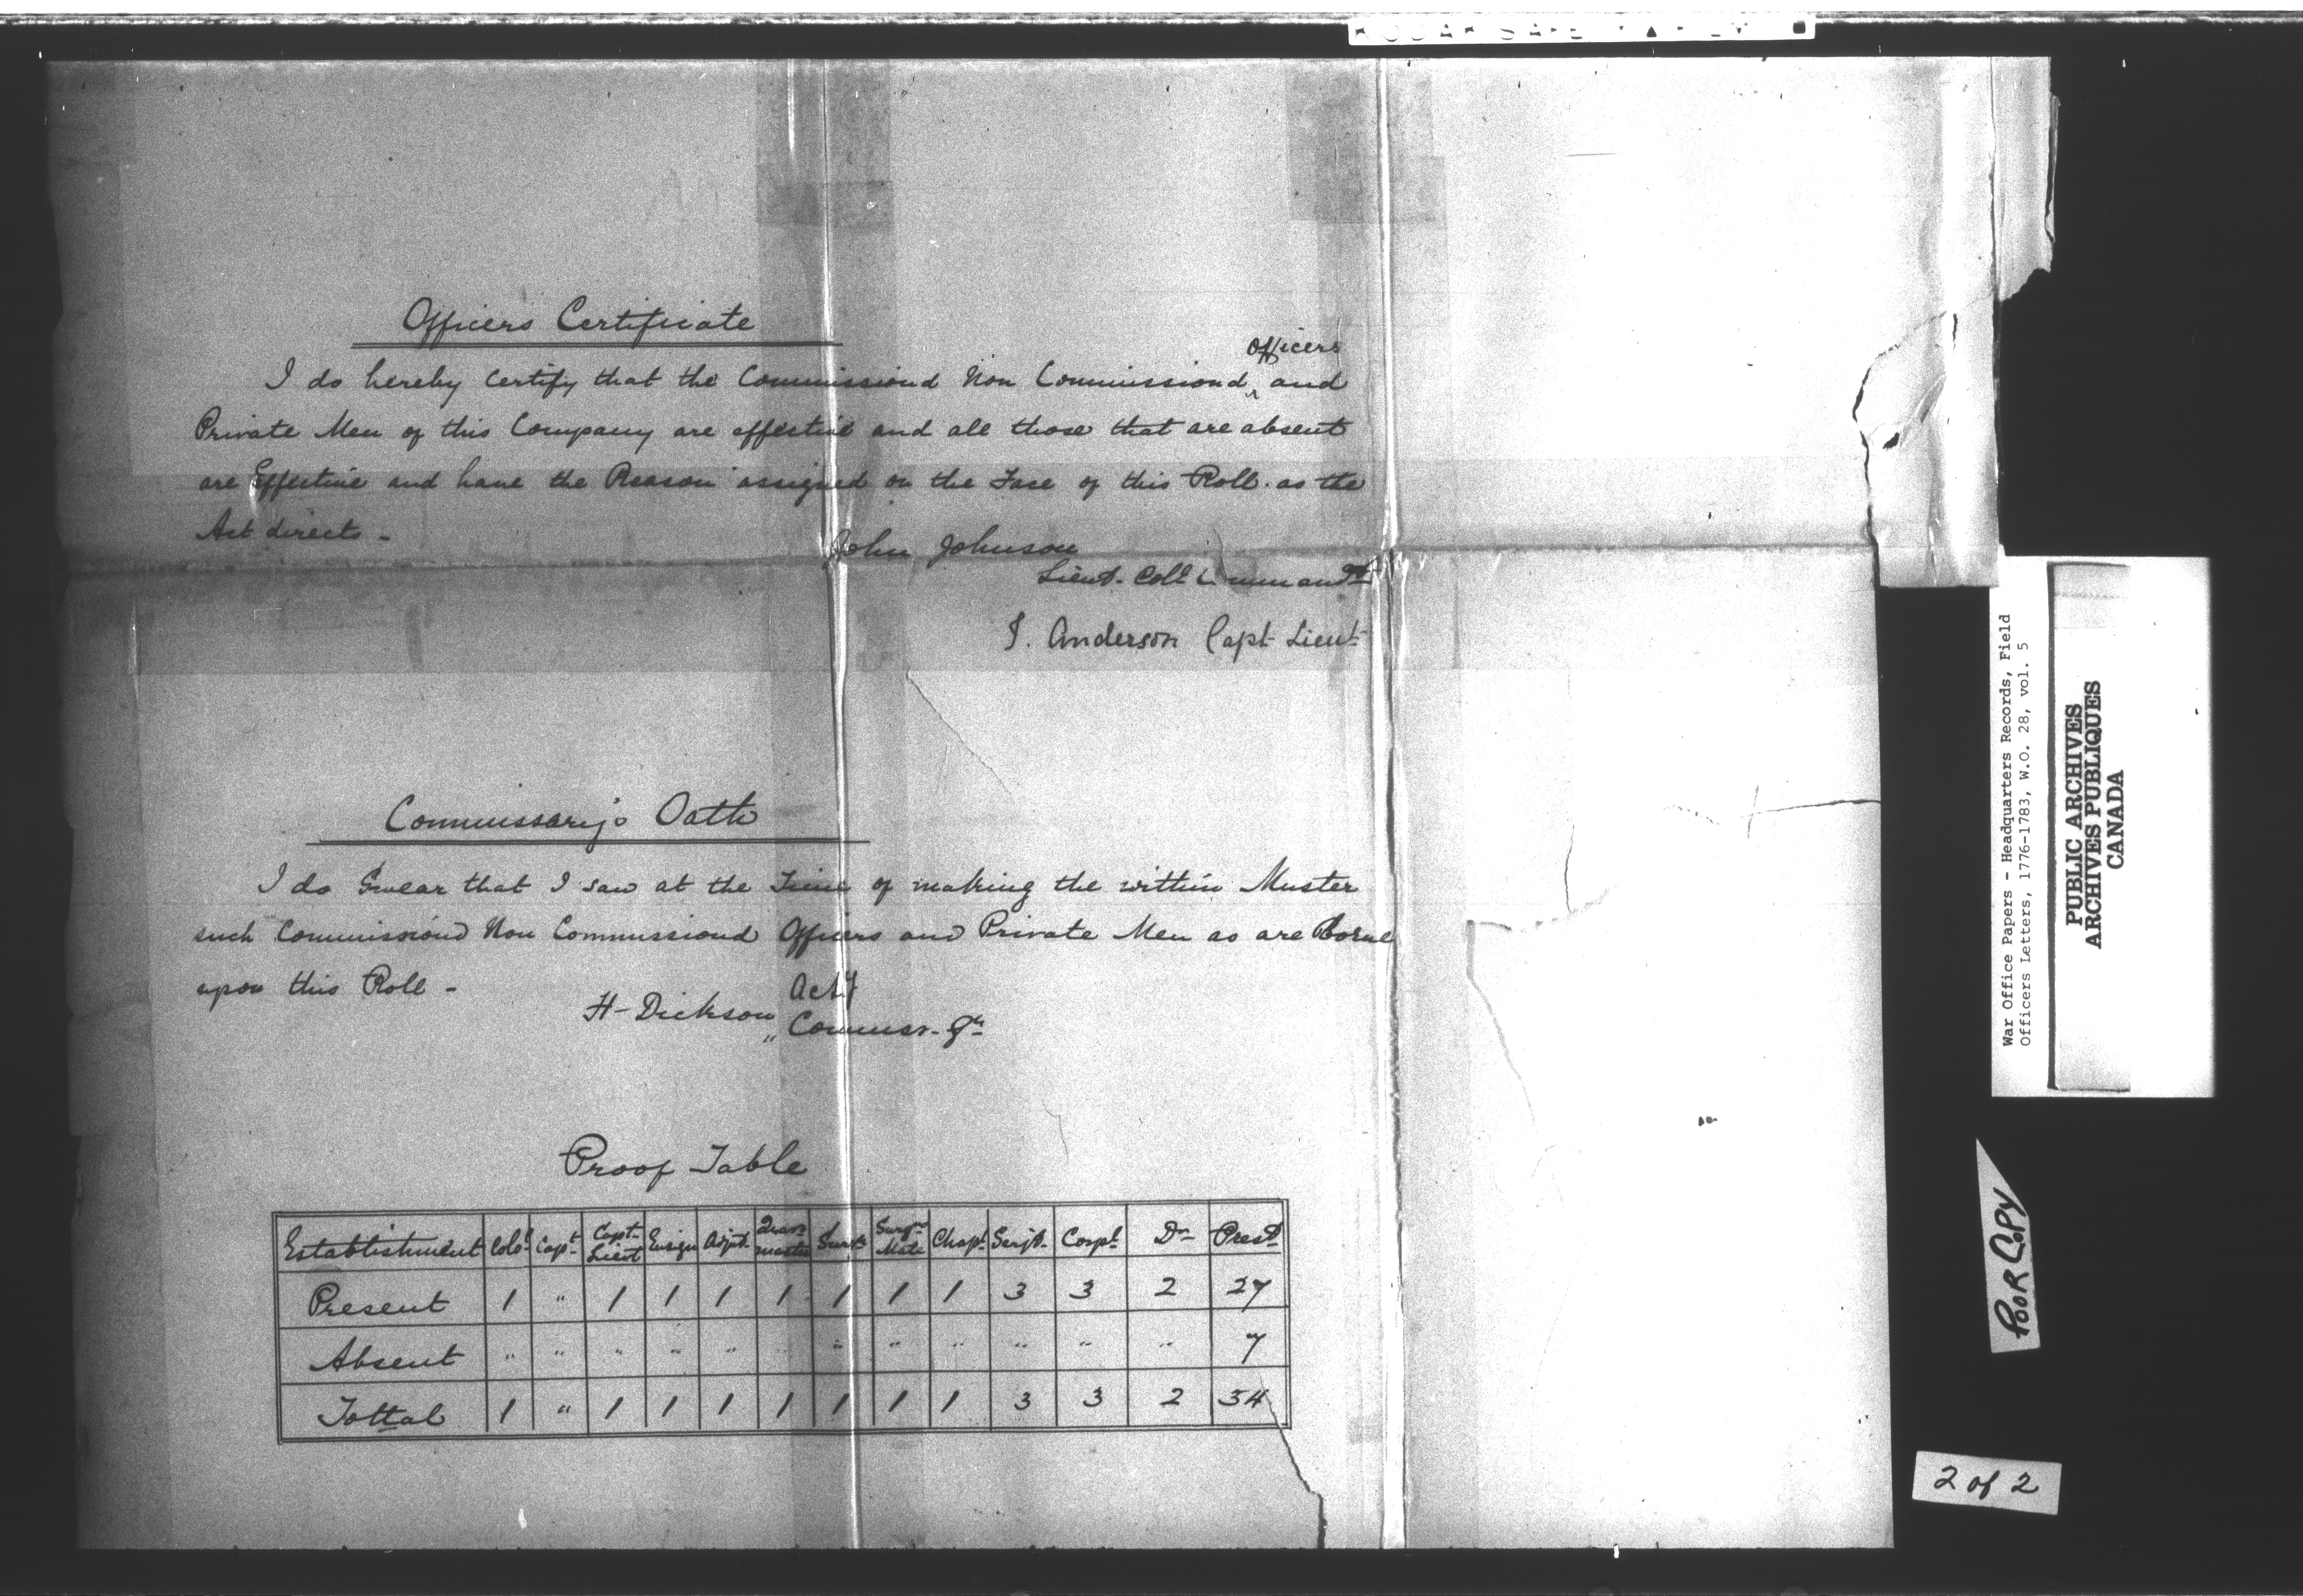 Officers Certificate
Officers
I do hereby Certify that the Commissiond Non Commissiond ^ and
Private Men of this Company are effective and all those that are absent
are Effective and have the Reason assigned on the Face of this Roll. as the
Act directs -
John Johnson
Lieut. Coll. Commandt
J. Anderson Capt Lieut
Commissarys Oath
I do Swear that I saw at the Time of making the within Muster
such Commissiond Non Commissiond Officers and Private Men as are Borne
upon this Roll -
H - Dickson " Actg
Commisr. Gn
Proof Table
Establishment Colol Capt Capt Lieut Ensign Adjut Quar master Surn Surgns Mate Chapl Serjt Corpl Dr Presd
Present 1 " 1 1 1 1 1 1 1 3 3 2 27
Absent " " " " " " " " " " " " 7
Tottal 1 " 1 1 1 1 1 1 1 3 3 2 34
War Office Papers - Headquarters Records, Field
Officers Letters, 1776-1783, W.O. 28, vol. 5
PUBLIC ARCHIVES
ARCHIVES PUBLIQUES
CANADA
POOR COPY
2 of 2